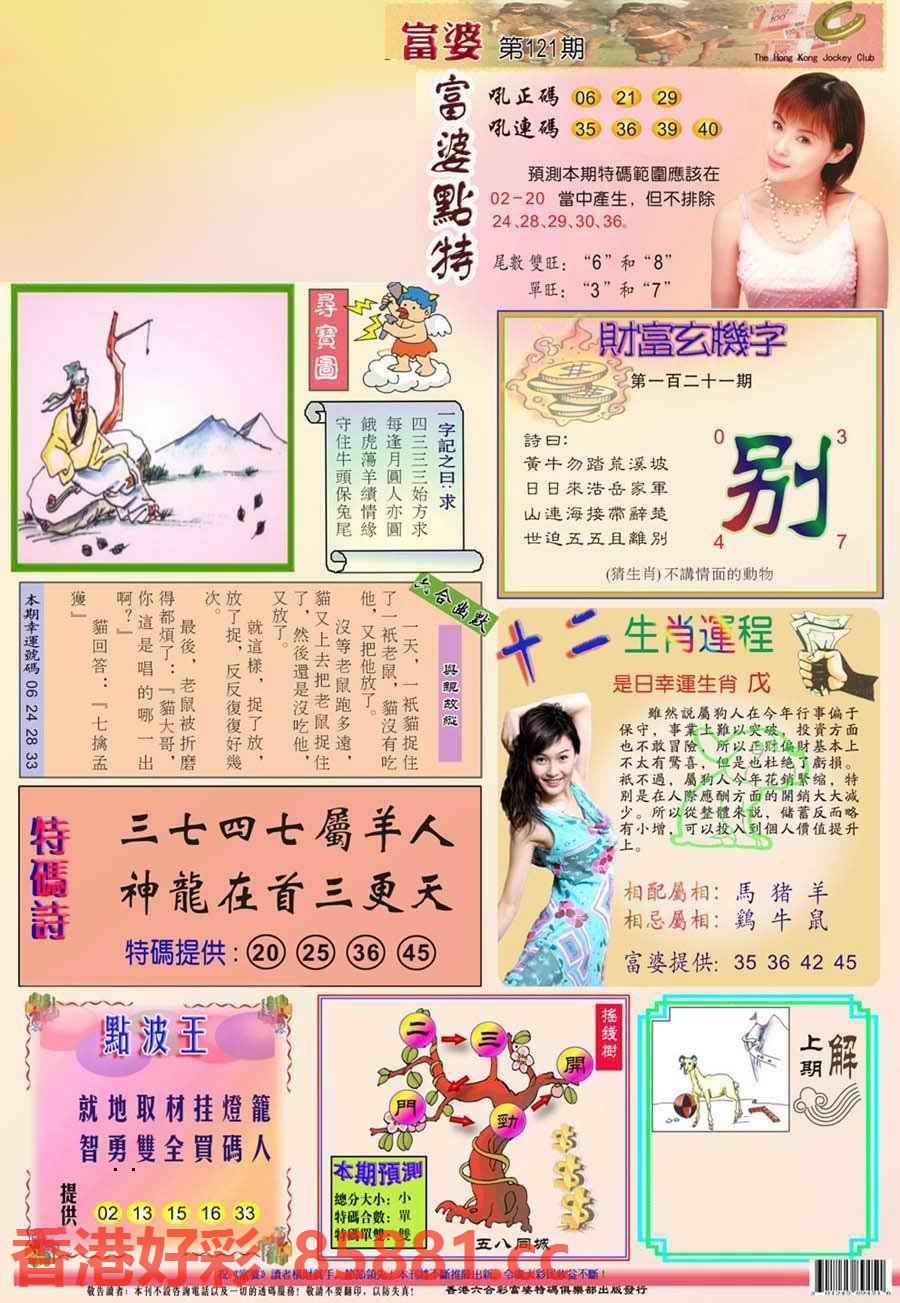 富婆 第121期
The Hong Kong Jockey Club
富婆點特
吼正碼 06 21 29
吼連碼 35 36 39 40
預測本期特碼範圍應該在
02-20 當中產生，但不排除
24、28、29、30、36。
尾數雙旺：“6”和“8”
單旺：“3”和“7”
尋寶圖
一字記之曰：求
四三三三始方求
每逢月圓人亦圓
餓虎蕩羊績情緣
守住牛頭保兔尾
財富玄機字
第一百二十一期
詩曰：
黃牛勿踏荒溪坡
日日來浩岳家軍
山連海接帶辭楚
世迫五五且離別
0 3
别
4 7
(猜生肖)不講情面的動物
六合幽默
與親故縱
一天，一衹貓捉住
了一衹老鼠，貓沒有吃
他，又把他放了。
沒等老鼠跑多遠，
貓又上去把老鼠捉住
了，然後還是沒吃他，
又放了。
就這樣，捉了放，
放了捉，反反復復好幾
次。
最後，老鼠被折磨
得都煩了：『貓大哥，
你這是唱的哪一出
啊？』
貓回答：『七擒孟
獲』
本期幸運號碼 06 24 28 33
十二生肖運程
是日幸運生肖 戊
雖然説屬狗人在今年行事偏于
保守，事業上難以突破，投資方面
也不敢冒險，所以正財偏財基本上
不太有驚喜，但是也杜绝了虧損。
衹不過，屬狗人今年花銷緊縮，特
別是在人際應酬方面的開銷大大减
少。所以從整體來説，儲蓄反而略
有小增，可以投入到個人價值提升
上。
相配屬相：馬 豬 羊
相忌屬相：鷄 牛 鼠
富婆提供：35 36 42 45
特碼詩
三七四七屬羊人
神龍在首三更天
特碼提供：20 25 36 45
點波王
就地取材挂燈籠
智勇雙全買碼人
提供 02 13 15 16 33
摇錢樹
二 三 開
門 勁
本期預測
總分大小：小
特碼合數：單
特碼單雙：雙
五八同城
上期解
香港好彩 85881.cc
敬告讀者：本刊不設咨詢電話以及一切的透碼服務！敬請不要翻印，以防失真！
香港六合彩富婆特碼俱樂部出版發行